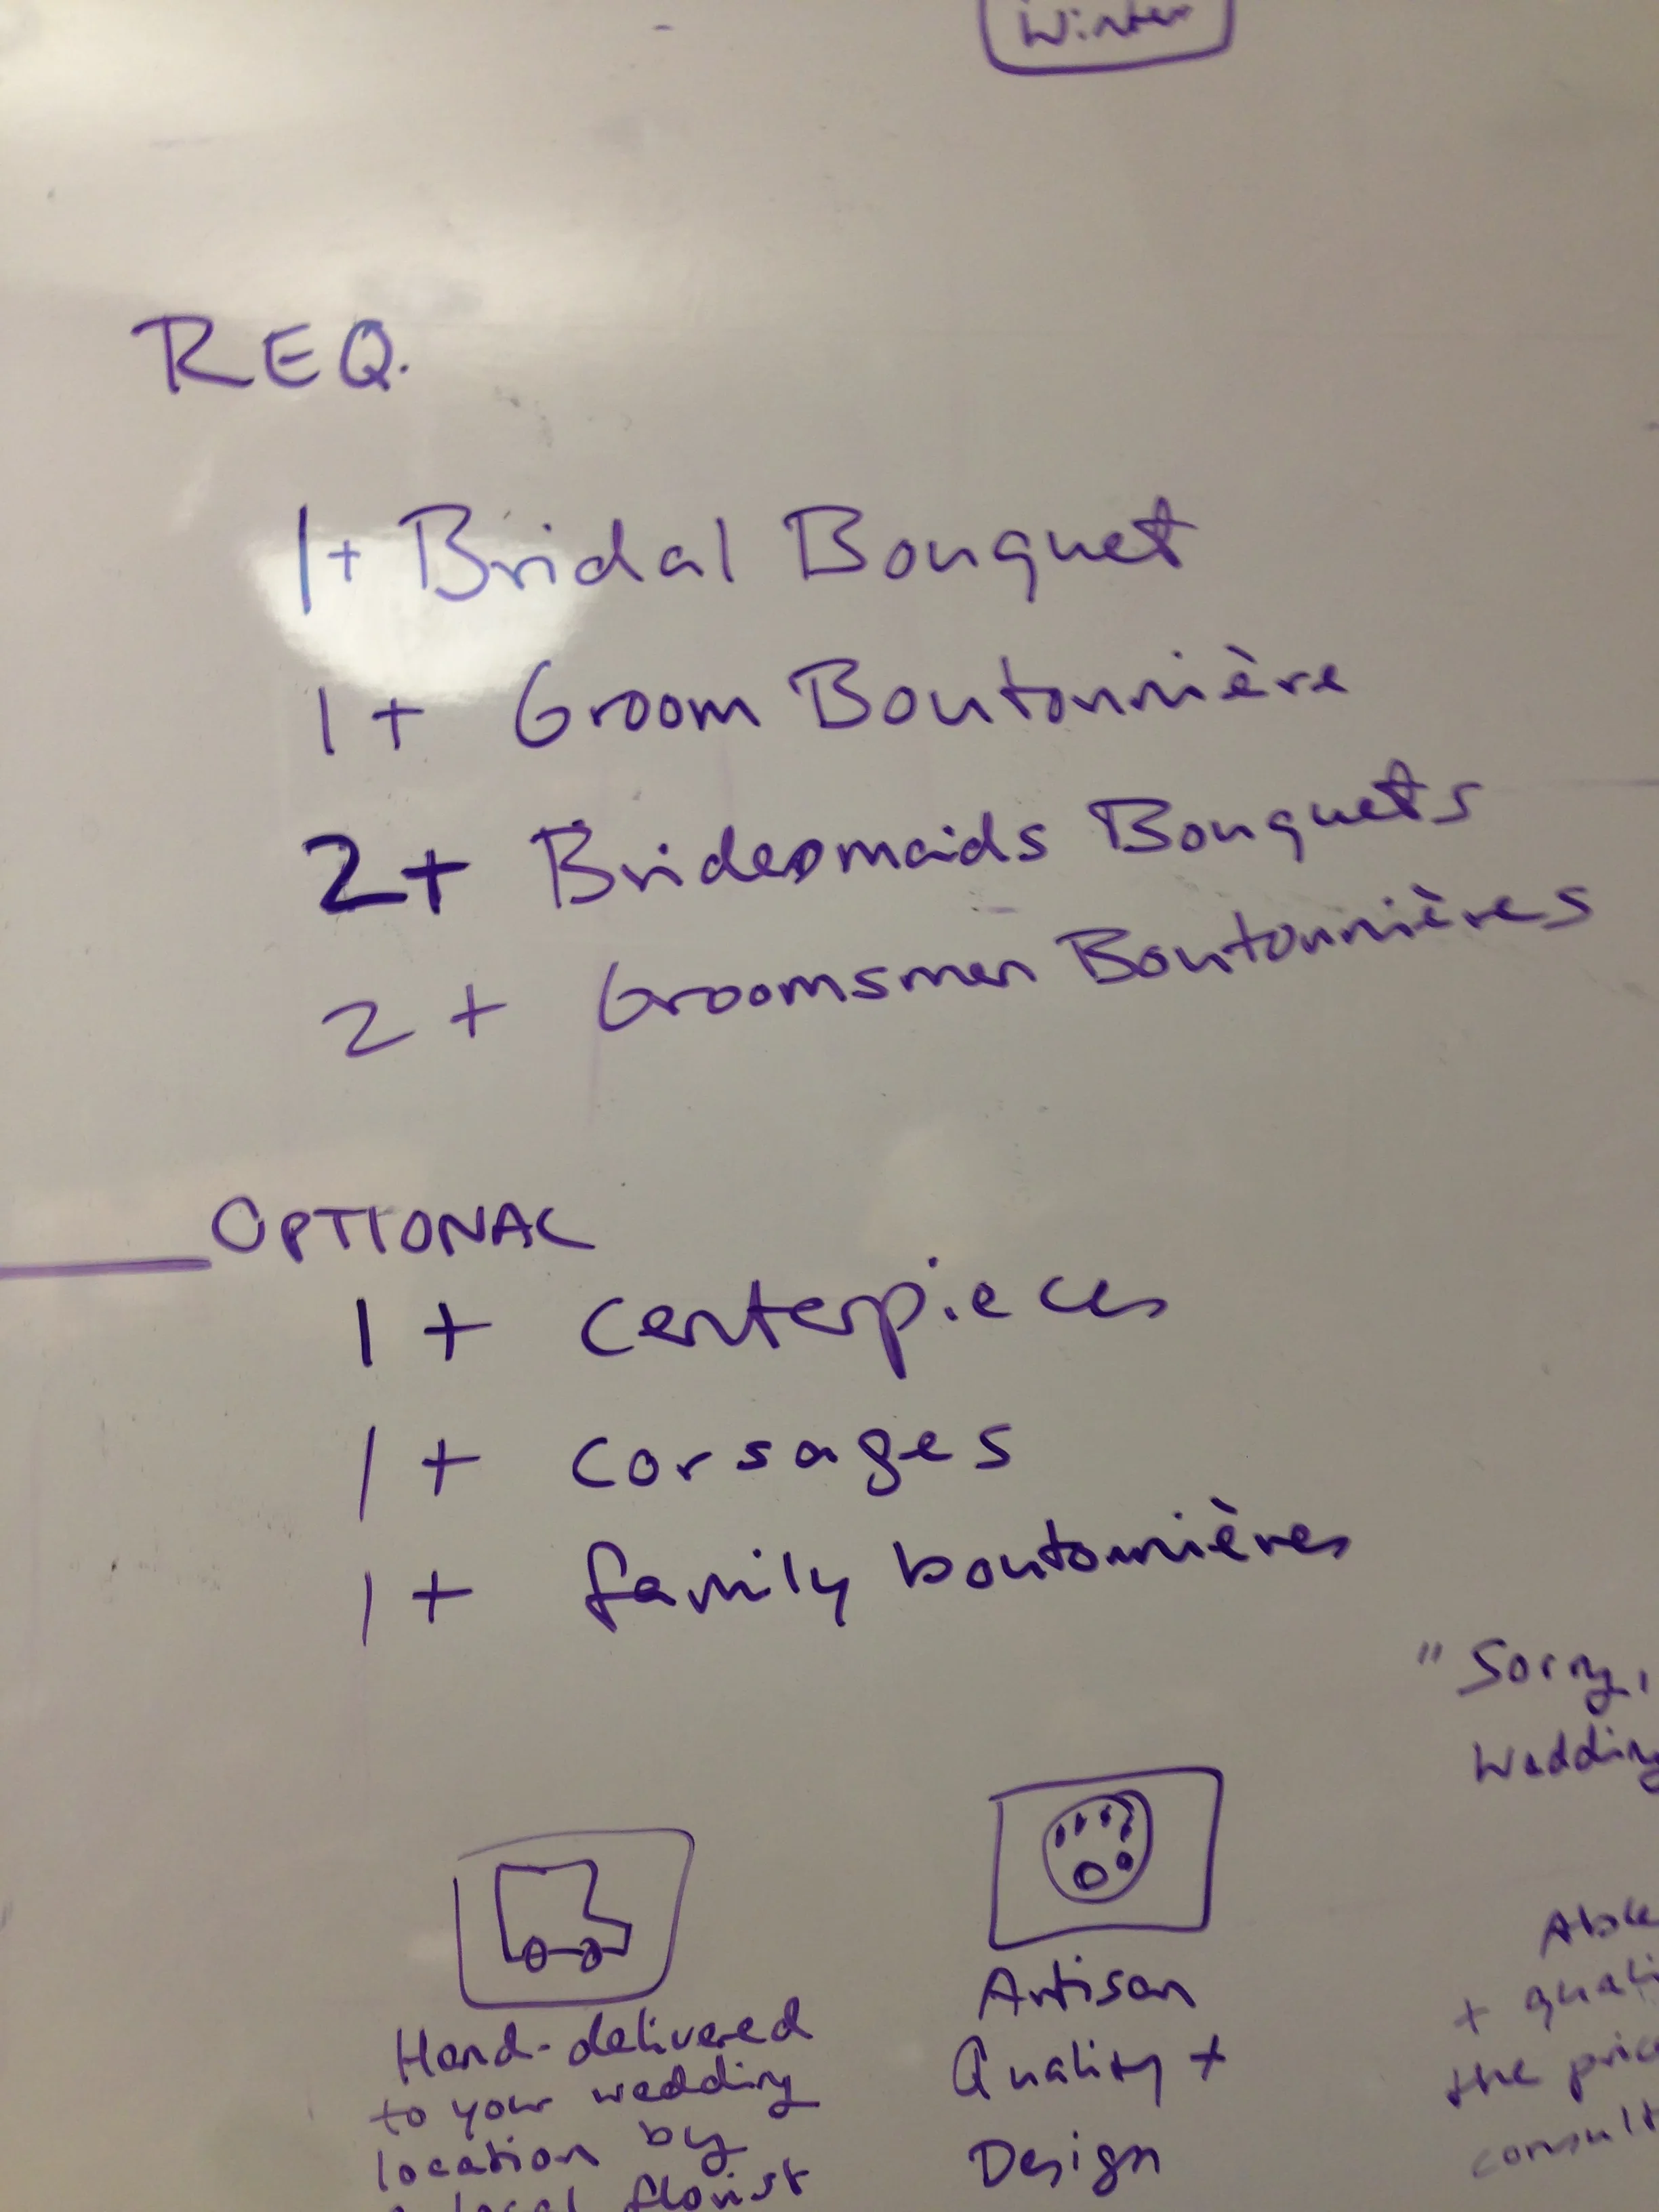 Winter
REQ.
1+ Bridal Bouquet
1+ Groom Boutonnière
2+ Bridesmaids Bouquets
2+ Groomsmen Boutonnières
OPTIONAL
1+ centerpieces
1+ corsages
1+ family boutonnières
"Sorry,
Wedding
Hand-delivered
to your wedding
location by
local florist
Artisan
Quality +
Design
+
the
consult